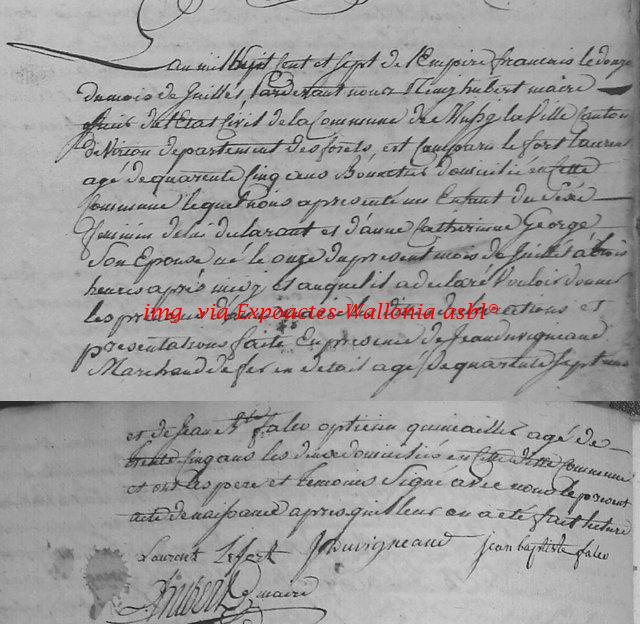 L'an mil huit cent et sept de l'Empire francais le douze
du mois de Juillet pardevant nous hubert maire
de l'Etat Civil de la Commune de Mussy la Ville Canton
de Virton departement des forets, est Comparu le fort laurent
agé de quarente Cinq ans Bonnetier domicilié en Cette
Commune lequel nous a presenté un Enfant du Sexe
feminin de lui declarant et d'anne Catherinne George
Son Epouse né le onze du present mois de Juillet à trois
heures après midy et auquel il a declaré Vouloir donner
les prenoms d'anne declarations et
presentations faite En presence de Jean duvigneaud
Marchand de fer en detail agé de quarente Sept ans
img via Expoactes-Wallonia asbl®
et de Jean Bte faleo opticien quincaillé agé de
trente cinq ans les deux domiciliés en Cette ditte Commune
et ont les pere et temoins Signé avec nous le present
acte de naissance apres qu'il leur en a eté fait lecture
Laurent Lefort JDuvigneaud jean baptiste faleo
Hubert maire